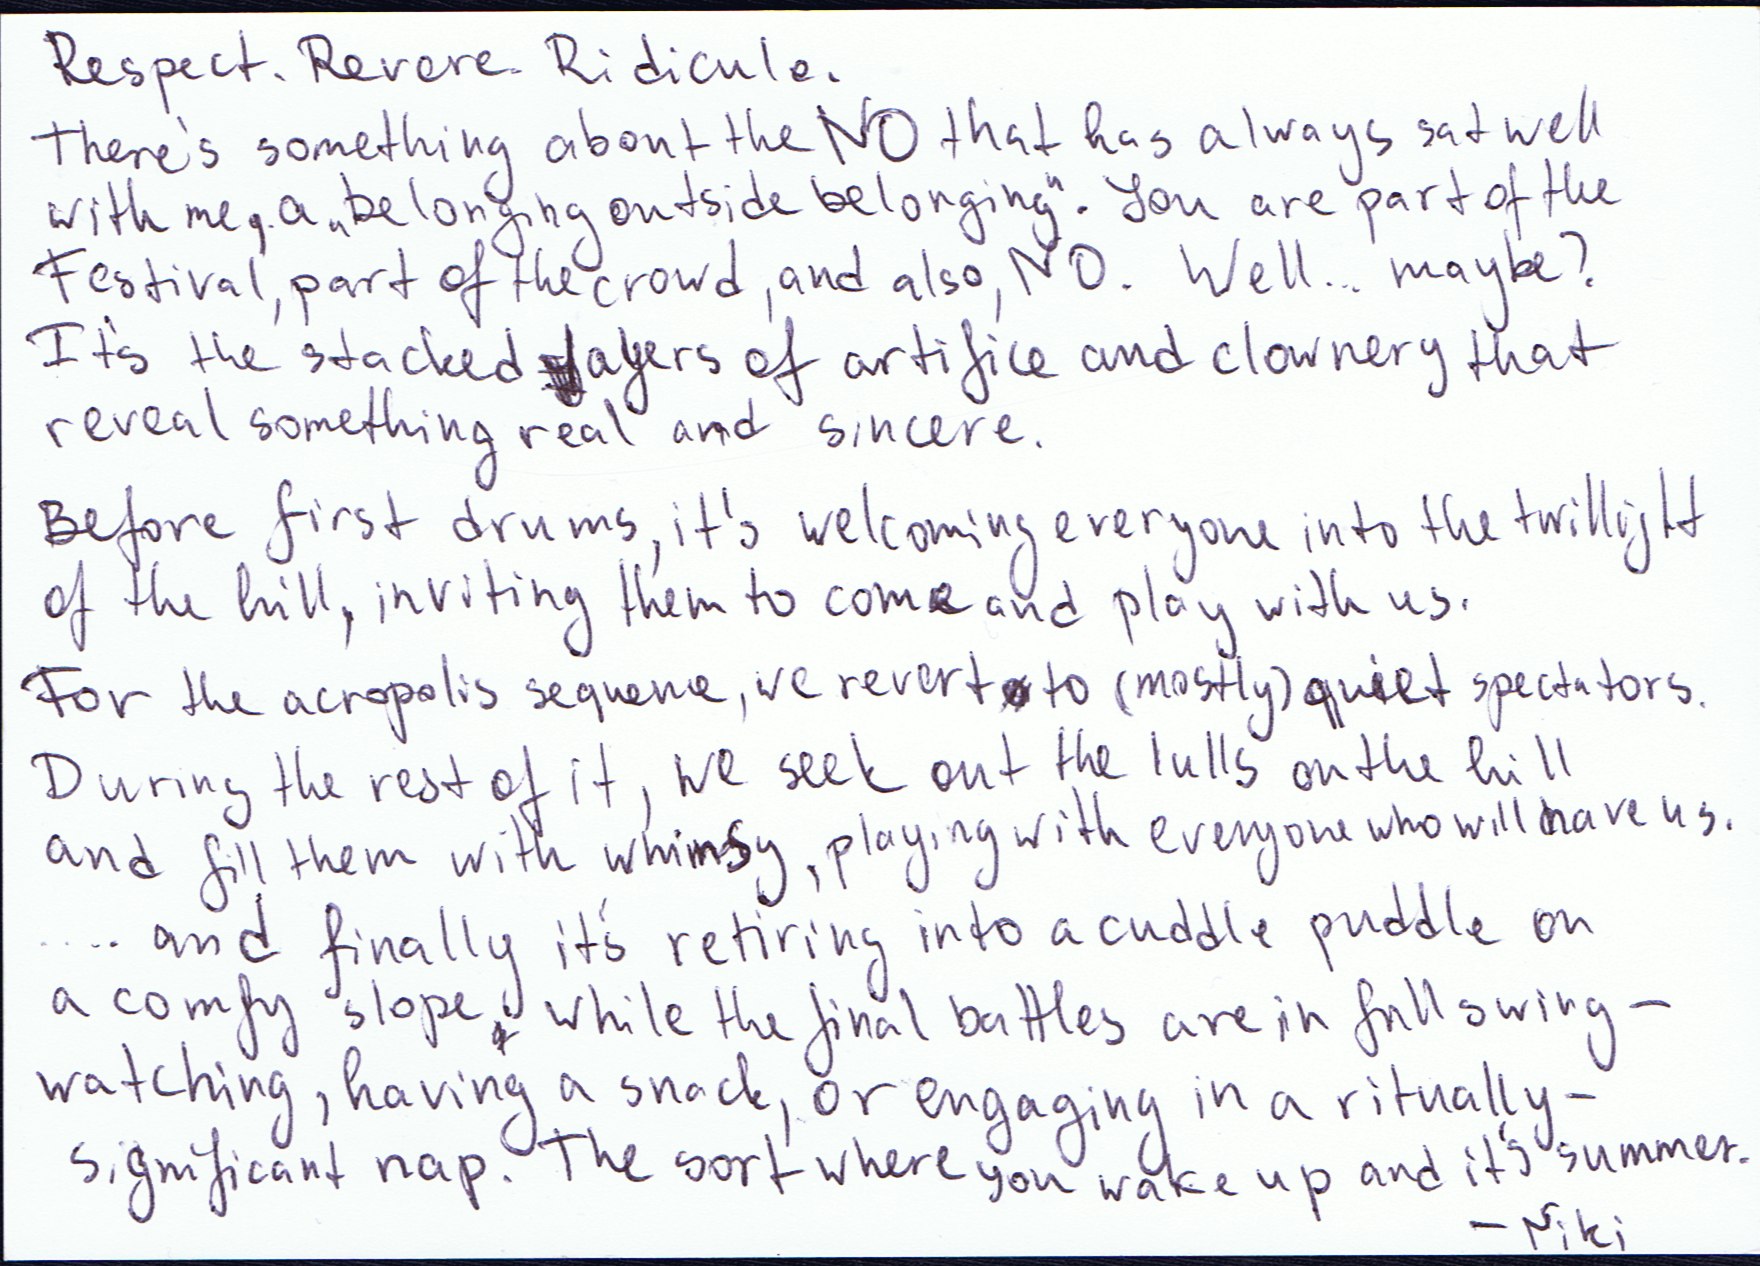 Respect. Revere. Ridicule.
There's something about the NO that has always sat well
with me, a „belonging outside belonging". You are part of the
Festival, part of the crowd, and also, NO. Well... maybe?
It's the stacked layers of artifice and clownery that
reveal something real and sincere.
Before first drums, it's welcoming everyone into the twillight
of the hill, inviting them to come and play with us.
For the acropolis sequence, we revert to (mostly) quiet spectators.
During the rest of it, we seek out the lulls on the hill
and fill them with whimsy, playing with everyone who will have us.
.... and finally it's retiring into a cuddle puddle on
a comfy slope, while the final battles are in full swing —
watching, having a snack, or engaging in a ritually-
significant nap. The sort where you wake up and it's summer.
— Niki